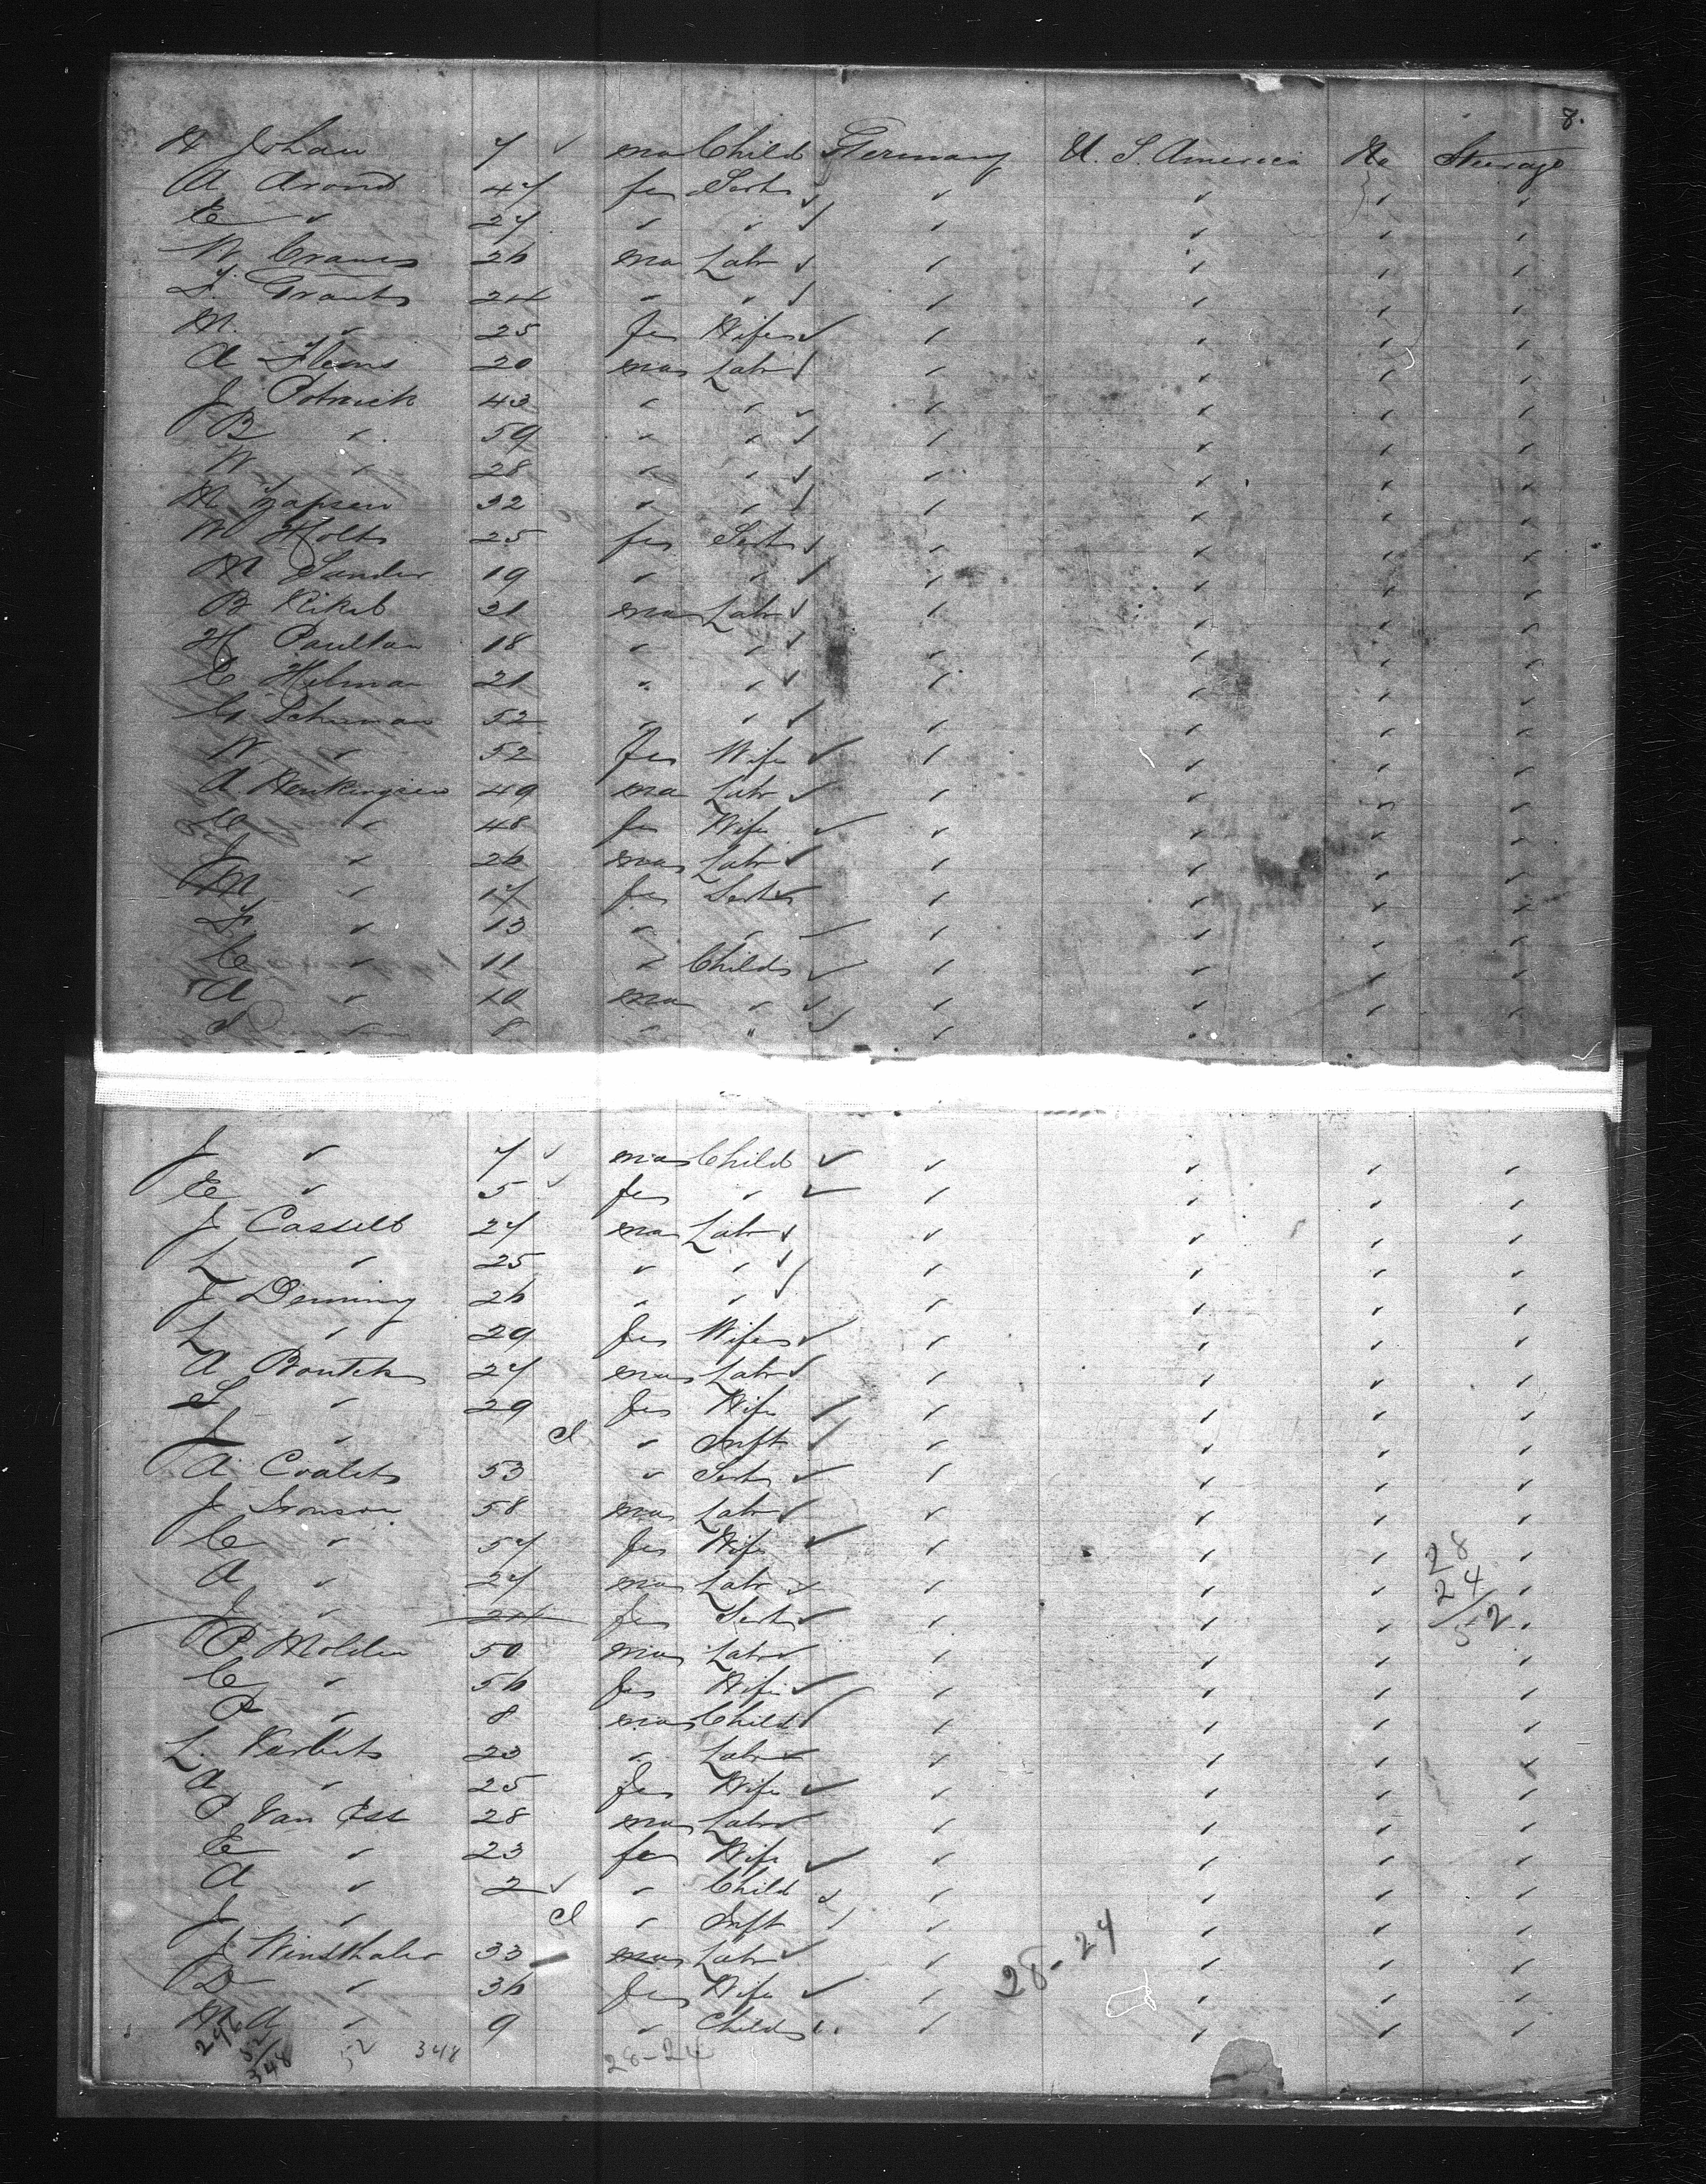 8.
H Johan 7 ✓ ma Child Germany U. S. America No Steerage
A Arond 47 fe Sert ✓ " " " "
E " 27 " " ✓ " " " "
W Cranes 26 ma Labr ✓ " " " "
F. Grants 24 " " ✓ " " " "
M. " 25 fe Wife ✓ " " " "
A 20 ma Labr ✓ " " " "
J Potraick 43 " " ✓ " " " "
B " 59 " " ✓ " " " "
W " 28 " " ✓ " " " "
M 32 " " ✓ " " " "
M Holts 25 fe Sert ✓ " " " "
M Sander 19 " " ✓ " " " "
B Rikel 21 ma Labr ✓ " " " "
H Paultan 18 " " ✓ " " " "
C Hilman 21 " " ✓ " " " "
G Schuman 52 " " ✓ " " " "
W " 52 fe Wife ✓ " " " "
A Henkingsen 49 ma Labr ✓ " " " "
C " 48 fe Wife ✓ " " " "
J " 26 ma Labr ✓ " " " "
M " 17 fe Sert ✓ " " " "
F " 13 " " ✓ " " " "
C " 11 " Child ✓ " " " "
A " 10 ma " ✓ " " " "
J " 8 " " ✓ " "
J " 7 ✓ ma Child ✓ " " " "
E " 5 ✓ fe " ✓ " " " "
J Cassell 27 ma Labr ✓ " " " "
L " 25 " " ✓ " " " "
J Denning 26 " " ✓ " " " "
L " 29 fe Wife ✓ " " " "
A Bontek 27 ma Labr ✓ " " " "
S " 29 fe Wife ✓ " " " "
J " " Inft ✓ " " " "
A Coalets 53 " Sert ✓ " " " "
J Ironson 58 ma Labr ✓ " " " "
C " 57 fe Wife ✓ " " " "
28
A " 27 ma Labr ✓ " " " "
24
J " 24 fe Sert ✓ " " " "
52
P Molden 50 ma Labr ✓ " " " "
C " 56 fe Wife ✓ " " " "
P " 8 ma Child ✓ " " " "
L. Verbets 23 " Labr ✓ " " " "
A " 25 fe Wife ✓ " " " "
P Van Ess 28 ma Labr ✓ " " " "
E " 23 fe Wife ✓ " " " "
A " 2 ✓ " Child ✓ " " " "
J " " Inft ✓ " " " "
J Winsthaler 33 ma Labr ✓ " " " "
28-24
D " 36 fe Wife ✓ " " " "
M A " 9 " Child " " " "
296 52 348 52 348 28-24